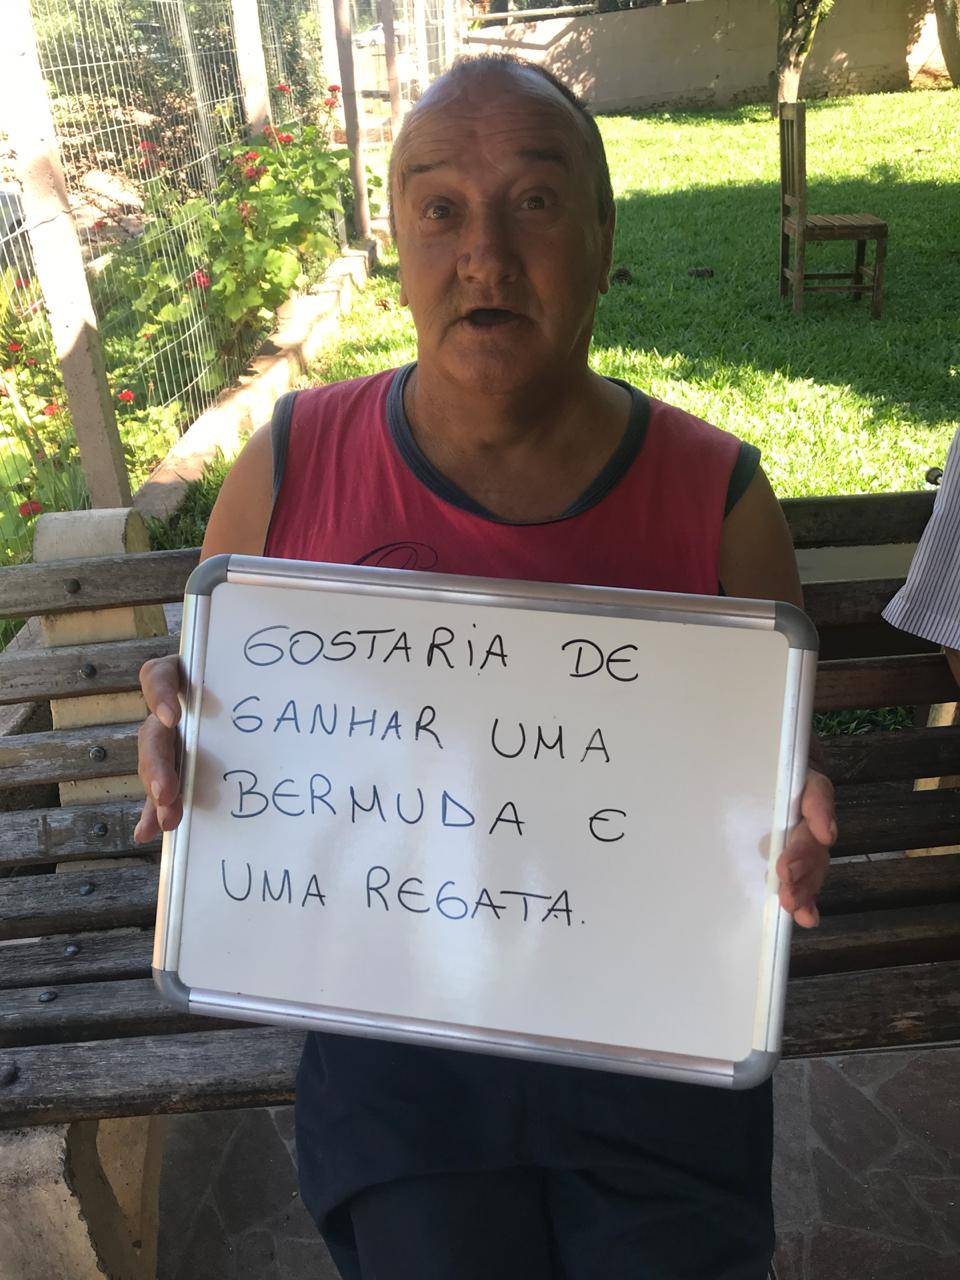 GOSTARIA DE
GANHAR UMA
BERMUDA E
UMA REGATA.